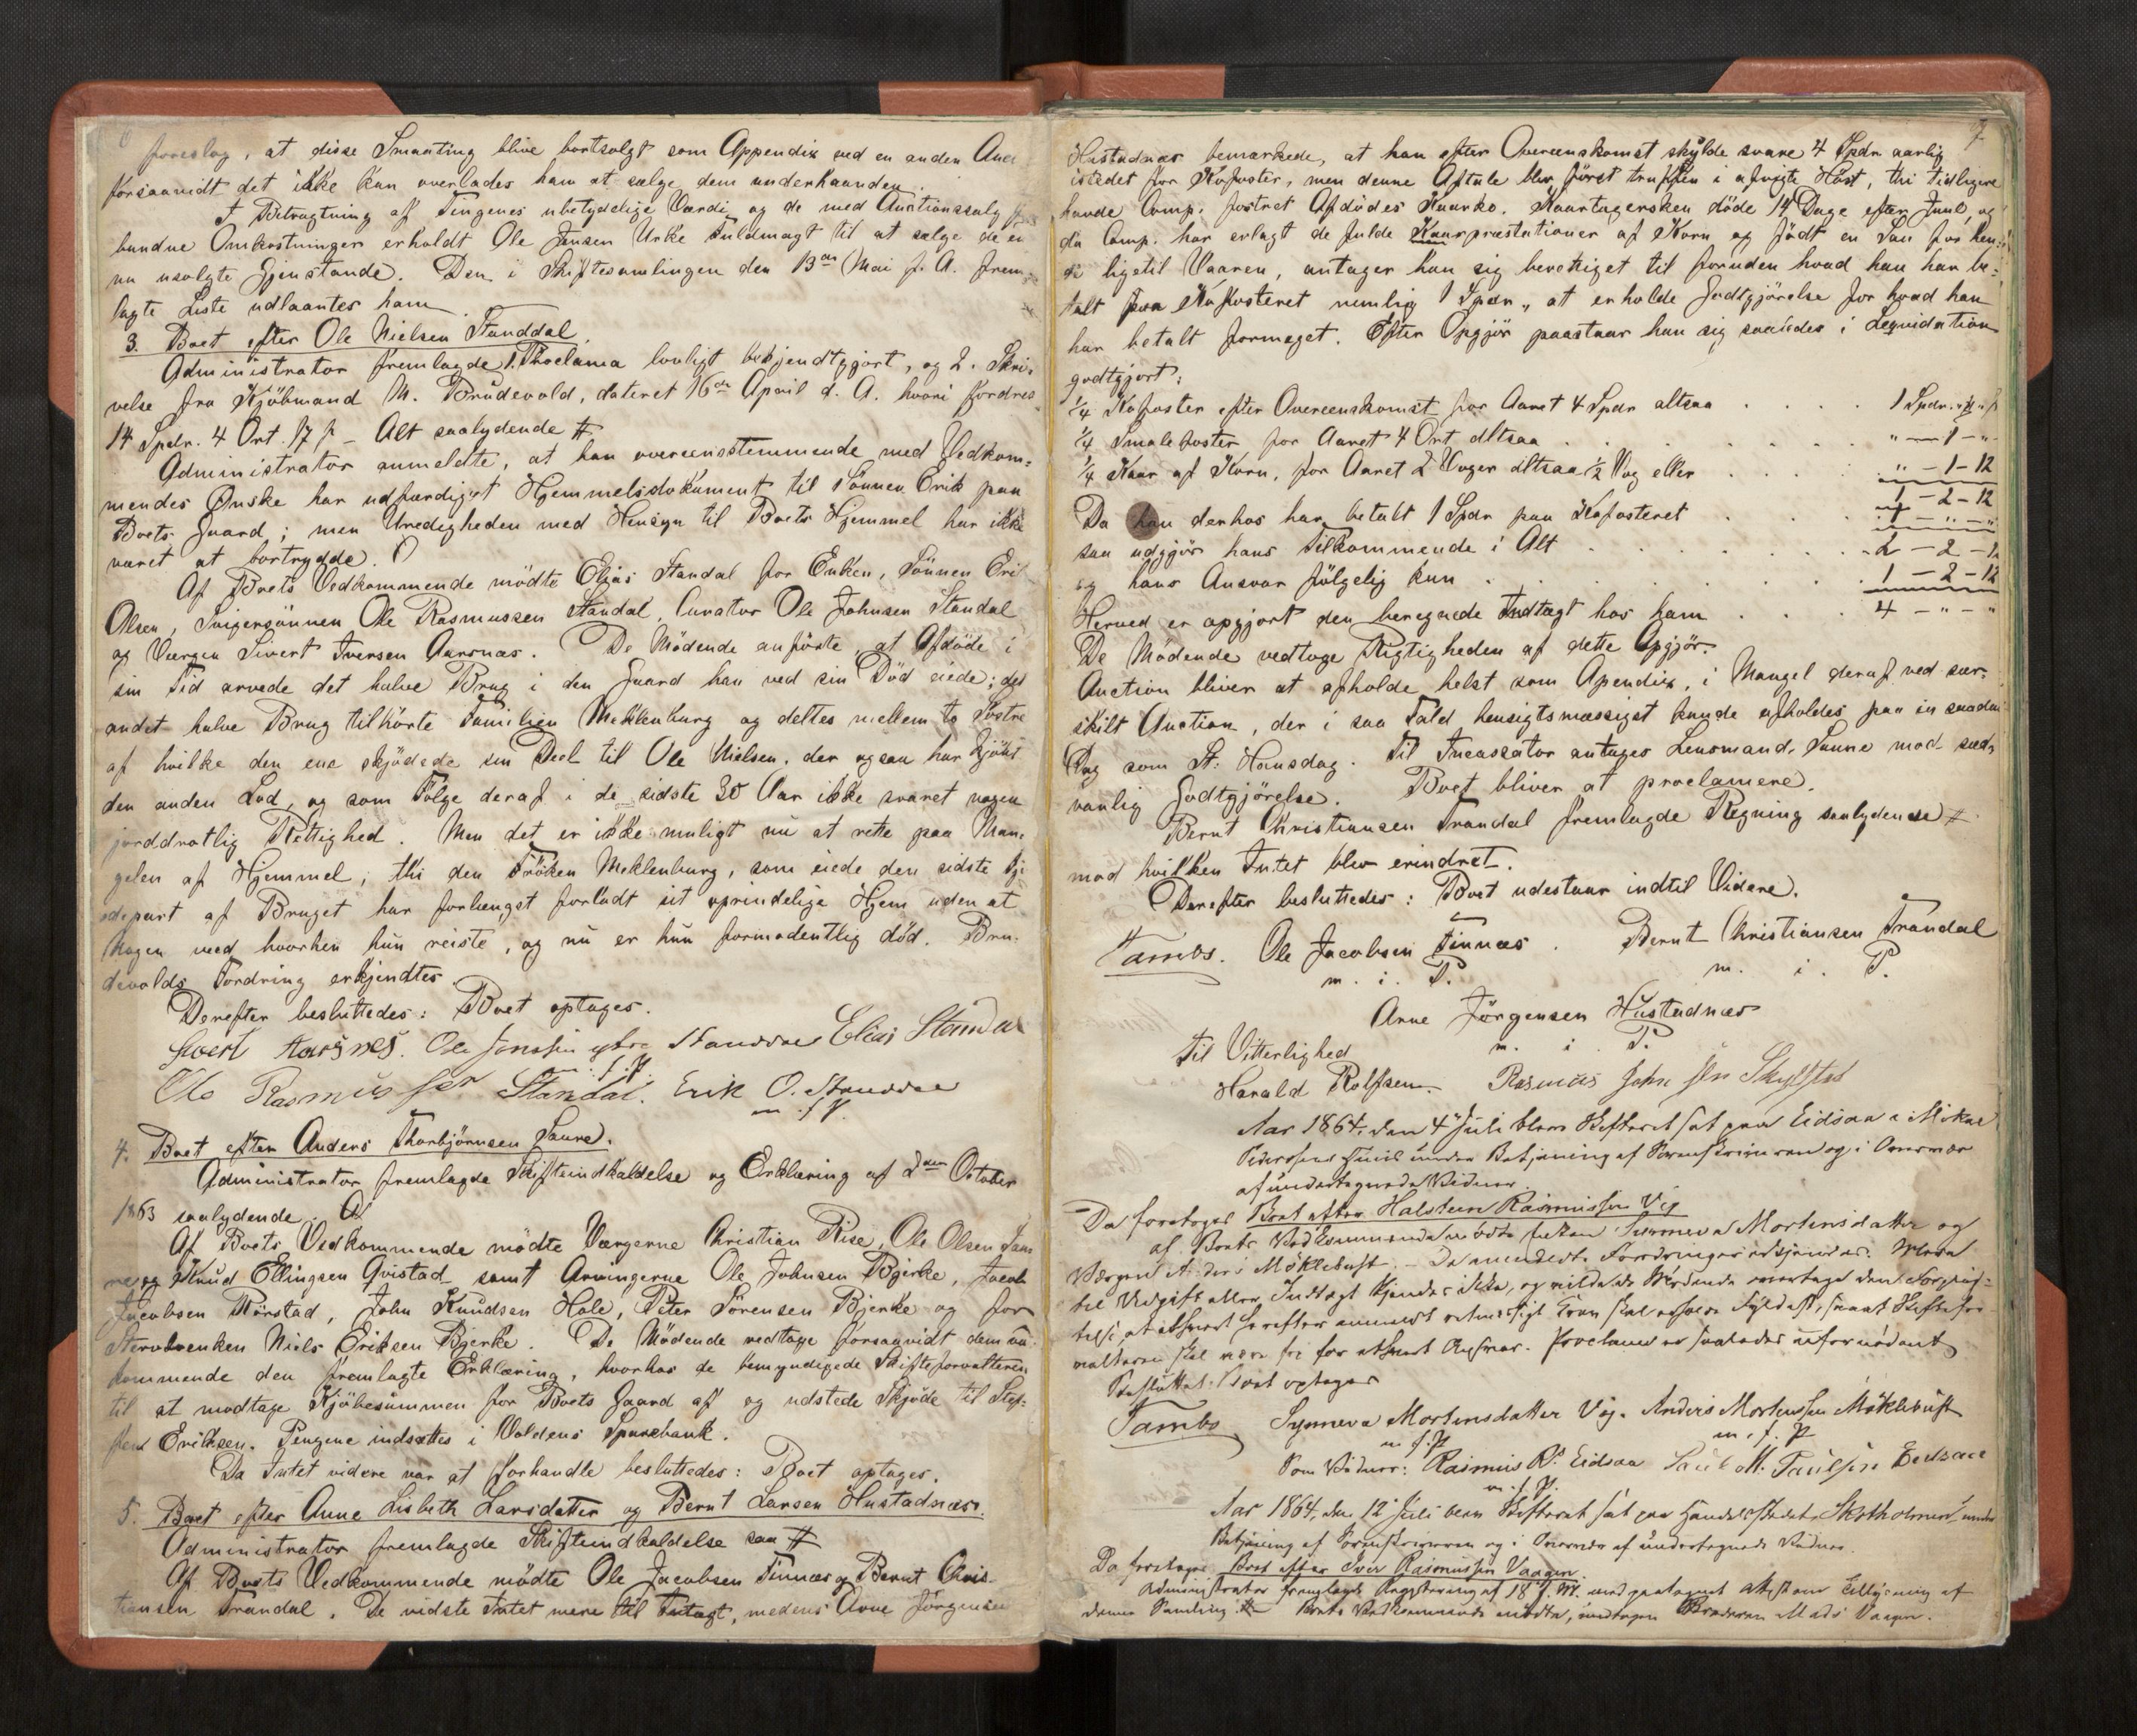 6
foreslog, at disse Smaating blive bortsolgt som Appendix ved en anden Auc
forsaavidt det ikke kan overlades ham at sælge dem underhaanden.
I Betragtning af Tingenes ubetydelige Værdi og de med Auctionssalg for
bundne Omkostninger erholdt Ole Jensen Urke Fuldmagt til at sælge de en
nu usolgte Gjenstande. Den i Skiftesamlingen den 13de Mai f. A. frem-
lagte Liste udlaantes ham
3. Boet efter Ole Nielsen Standdal
Administrator fremlagde 1. Proclama lovligt bekjendtgjort, og 2. Skri-
velse fra Kjöbmand M. Brudevold, dateret 16de April d. A. hvori fordres
14 Spdr. 4 Ort. 17 s – Alt saalydende #
Administrator anmeldte, at han overeensstemmende med Vedkom-
mendes Ønske har udfærdiget Hjemmelsdokument til Sönnen Erik paa
Boets Gaard; men Uredigheden med Hensyn til Boets Hjemmel har ikke
været at bortrydde.
Af Boets Vedkommende mödte Elias Standal for Enken, Sönnen Erik
Olsen, Svigersönnen Ole Rasmussen Standal, Curator Ole Johnsen Standal
og Værgen Sivert Iversen Aarsnæs. De Mödende anförte, at Afdöde i
sin Tid arvede det halve Brug i den Gaard han ved sin Död eiede; det
andet halve Brug tilhörte Familien Meklenburg og deltes mellem to Söstre
af hvilke den ene skjödede sin Deel til Ole Nielsen, der ogsaa har kjöbt
den anden Lod, og som Fölge deraf i de sidste 30 Aar ikke svaret nogen
jorddrotlig Rettighed. Men det er ikke muligt nu at rette paa Man-
gelen af Hjemmel; thi den Fröken Meklenburg, som eiede den sidste Fje
redepart af Bruget har forlængst forladt sit oprindelige Hjem uden at
Nogen veed hvorhen hun reiste, og nu er hun formodentlig död. Bru-
devolds Fordring erkjendtes
Derefter besluttedes: Boet optages.
Sivert Aarsnes. Ole Jonsen ytre Standdal Elias Standal
m. f. P.
Ole Rasmussen Standal. Erik O. Standdal
m. f. P.
4. Boet efter Anders Thorbjörnsen Saure.
Administrator fremlagde Skifteindkaldelse og Erklæring af 2den October
1863 saalydende #
Af Boets Vedkommende mödte Værgerne Christian Rise, Ole Olsen Sau
re og Knud Ellingsen Qvistad samt Arvingerne Ole Johnsen Bjerke, Jacob
Jacobsen Rörstad, John Knudsen Hole, Peter Sörensen Bjerke og for
Stervboenken Niels Eriksen Bjerke. De Mödende vedtoge forsaavidt dem ved-
kommende den fremlagte Erklæring, hvorhos de bemyndigede Skifteforvalteren
til at modtage Kjöbesummen for Boets Gaard af og udstede Skjöde til Stef-
fen Eriksen. Pengene indsættes i Voldens Sparebank.
Da Intet videre var at forhandle besluttedes: Boet optages.
5. Boet efter Anne Lisbeth Larsdatter og Bernt Larsen Hustadnæs.
Administrator fremlagde Skifteindkaldelse saa #
Af Boets Vedkommende mödte Ole Jacobsen Finnæs og Bernt Chris-
tiansen Trandal. De vidste Intet mere til Indtægt, medens Arne Jörgensen
7
Hustadnæs bemærkede, at han efter Overeenskomst skulde svare 4 Spdr. aarlig
istedet for Kofoster, men denne Aftale blev först truffen i afvigte Höst, thi tidligere
havde Comp. fostret Afdödes Kaarko. Kaartagersken döde 14 Dage efter Juul, og
da Comp. har erlagt de fulde Kaarpræstationer af Korn og födt en Sau for hen-
de ligetil Vaaren, antager han sig berettiget til foruden hvad han har be-
talt paa Kofosteret nemlig 1 Spdr., at erholde Godtgjörelse for hvad han
har betalt formeget. Efter Opgjör paastaar han sig saaledes i Liqvidation
godtgjort:
1/4 Kofoster efter Overeenskomst for Aaret 4 Spdr altsaa . . . . 1 Spdr. " # " s
1/4 Smalefoster for Aaret 4 Ort altsaa . . . . . . . " – 1 – "
1/4 Kaar af Korn, for Aaret 2 Voger altsaa 1/2 Vog eller . . . . " – 1 – 12
1 – 2 – 12
Da han derhos har betalt 1 Spdr paa Kofosteret . . . . 1 – " – "
saa udgjör hans Tilkommende i Alt . . . . . . . 2 – 2 – 12
og hans Ansvar fölgelig kun . . . . . . . . . 1 – 2 – 12
Herved er opgjort den beregnede Indtægt hos ham . . . 4 – " – "
De Mödende vedtoge Rigtigheden af dette Opgjör.
Auction bliver at afholde helst som Apendix, i Mangel deraf ved sær-
skilt Auction, der i saa Fald hensigtsmæssigst kunde afholdes paa en saadan
Dag som St. Hansdag. Til Incassator antages Lensmand Saure mod sæd-
vanlig Godtgjörelse. Boet bliver at proclamere.
Bernt Kristiansen Trandal fremlagde Regning saalydende #
mod hvilken Intet blev erindret.
Derefter besluttedes: Boet udestaar indtil Videre.
Tambs. Ole Jacobsen Finnæs. Bernt Christiansen Trandal
m. i. P. m. i. P.
Arne Jörgensen Hustadnæs
m. i. P.
Til Vitterlighed
Harald Rolfsen. Rasmus Johnsen Skylstad
Aar 1864, den 4 Juli blev Skifteret sat paa Eidsaa i Mikael
Pedersens Huus under Betjening af Sorenskriveren og i Overvær
af undertegnede Vidner.
Da foretoges Boet efter Halsteen Rasmussen Vig
af Boets Vedkommende mödte Enken Synneva Mortensdatter og
Værgen Anders Möklebust. – De anmeldte Fordringer erkjendes. Mere
til Udgift eller Indtægt kjendes ikke, og vilde de Mödende overtage den Forplig-
telse, at ethvert herefter anmeldt retmessigt Krav skal erholde Fyldest, samt Skiftefor-
valteren skal være fri for ethvert Ansvar. Proclama er saaledes ufornödent
Besluttet: Boet optages
Tambs Synneva Mortensdatter Vig. Anders Mortensen Möklebust
m. f. P. m. f. P.
Som Vidner: Rasmus R. Eidsaa Paul M. Paulsen Eidsaa
m. f. P.
Aar 1864, den 12 Juli blev Skifteret sat paa Handelsstedet Skotholmen under
Betjening af Sorenskriveren og i Overvær af undertegnede Vidner.
Da foretoges Boet efter Iver Rasmussen Vaagen.
Administrator fremlagde Registrering af 18 f. M. med paategnet Attest om Tillysning af
denne Samling # Boets Vedkommende mödte, undtagen Broderen Mads Vaagen.